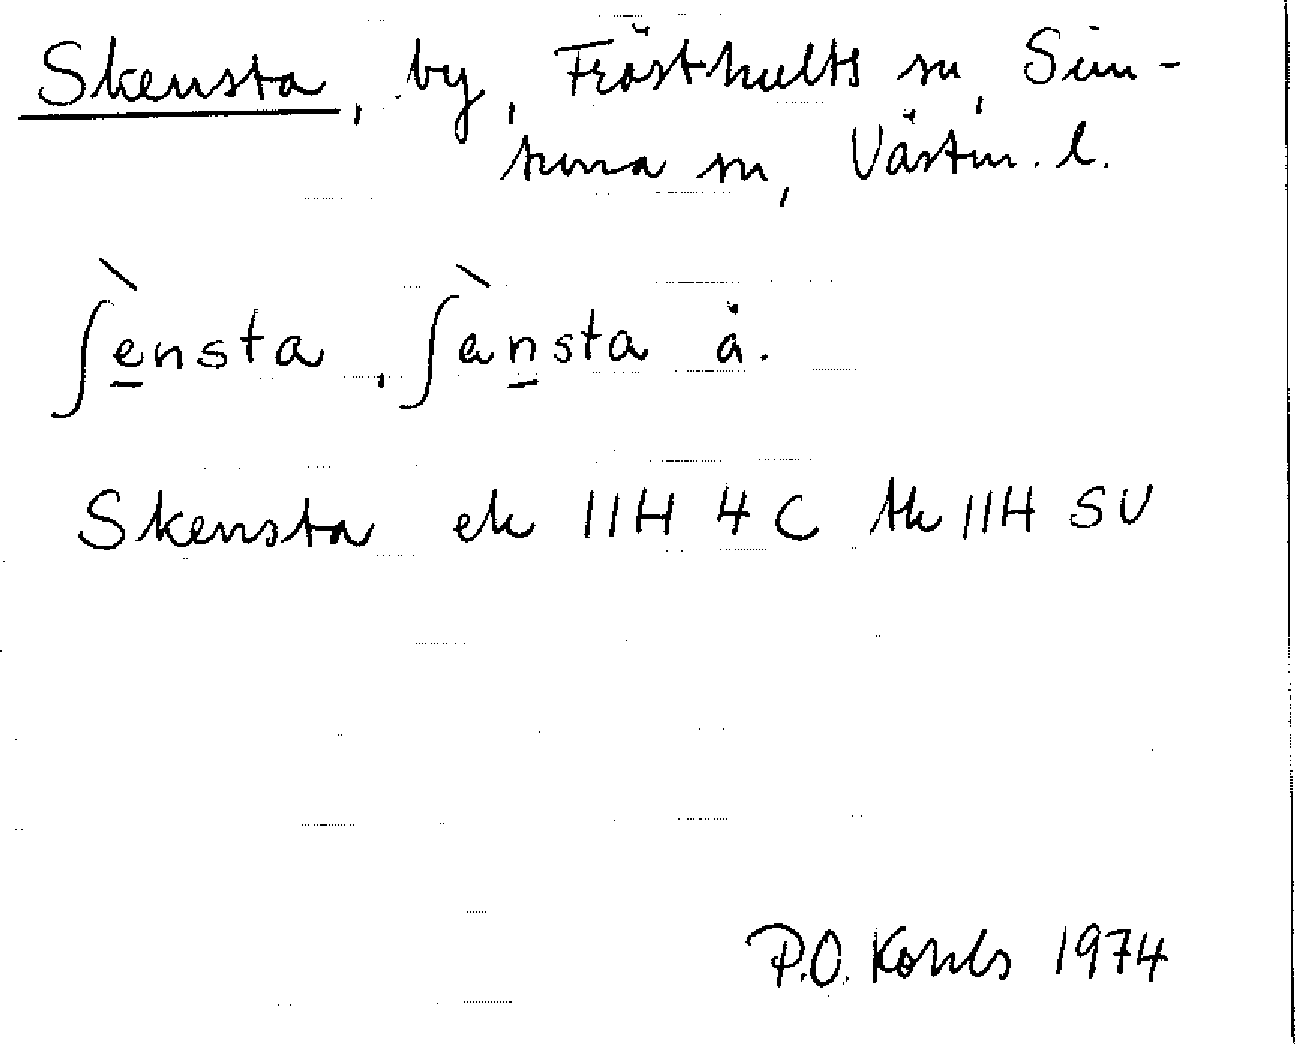 Skensta, by, Frösthults sn, Sim-
tuna sn, Västm. l.
ʃènsta, ʃànsta ä.
Skensta ek 11H 4c tk 11H SV
P.O. Kohls 1974